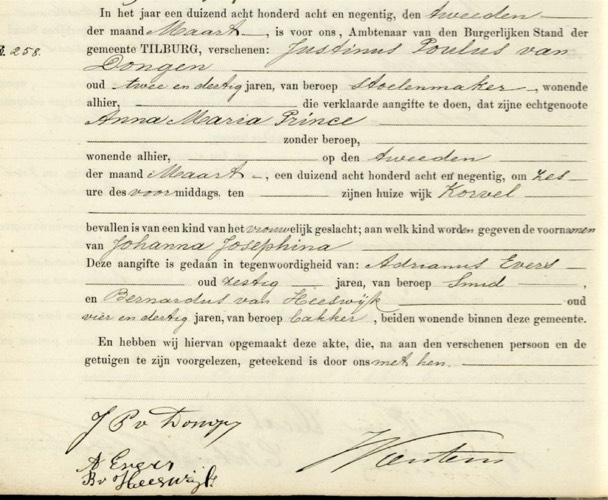 In het jaar een duizend acht honderd acht en negentig, den tweeden
der maand Maart, is voor ons, Ambtenaar van den Burgerlijken Stand der
258.
gemeente TILBURG, verschenen: Justinus Poulus van
Dongen
oud twee en dertig jaren, van beroep Stoelenmaker, wonende
alhier, die verklaarde aangifte te doen, dat zijne echtgenoote
Anna Maria Prince
zonder beroep,
wonende alhier, op den tweeden
der maand Maart, een duizend acht honderd acht en negentig, om zes
ure des voormiddags. ten zijnen huize wijk Korvel
bevallen is van een kind van het vrouwelijk geslacht; aan welk kind worden gegeven de voornamen
van Johanna Josephina
Deze aangifte is gedaan in tegenwoordigheid van: Adrianus Evers
oud zestig jaren, van beroep Smid,
en Bernardus van Heeswijk oud
vier en dertig jaren, van beroep bakker, beiden wonende binnen deze gemeente.
En hebben wij hiervan opgemaakt deze akte, die, na aan den verschenen persoon en de
getuigen te zijn voorgelezen, geteekend is door ons met hen.
J P v Dongen
A Evers
B v Heeswijk